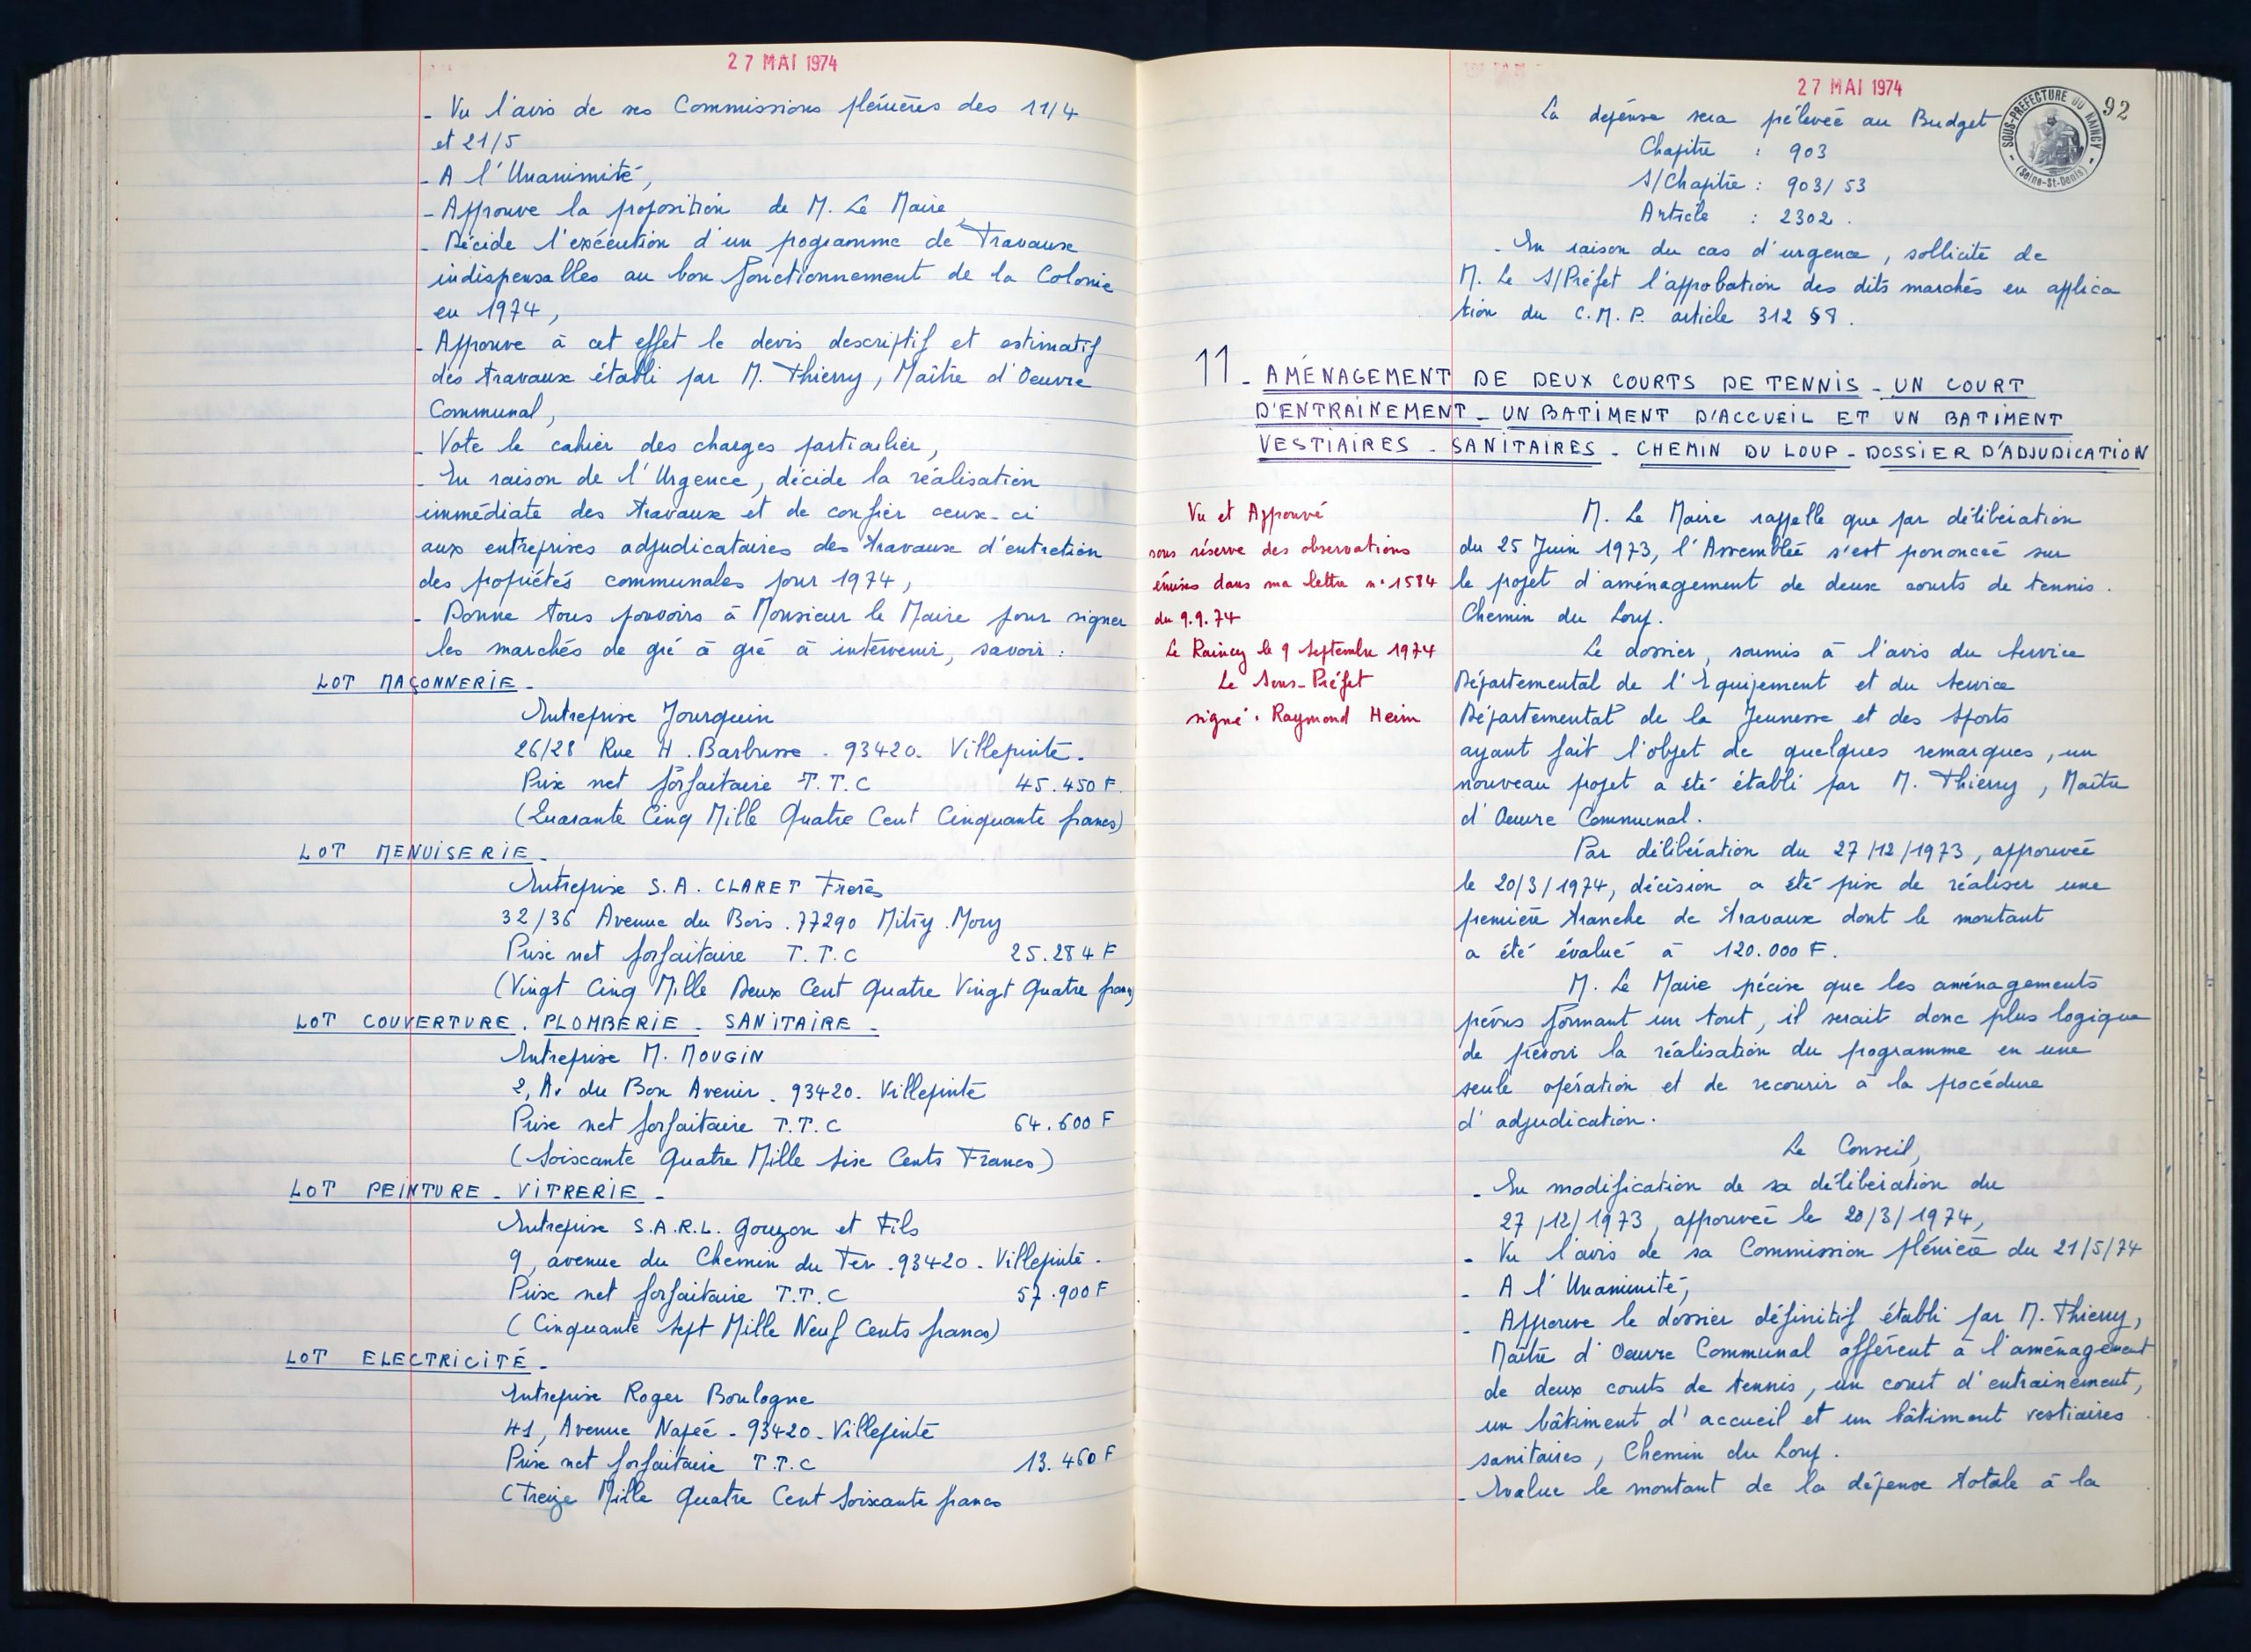 27 MAI 1974
- Vu l'avis de ses Commissions plénières des 11/4
et 21/5
- A l'Unanimité,
- Approuve la proposition de M. Le Maire
- Décide l'exécution d'un programme de Travaux
indispensables au bon fonctionnement de la Colonie
en 1974,
- Approuve à cet effet le devis descriptif et estimatif
des travaux établi par M. Thierry, Maître d'Oeuvre
Communal,
- Vote le cahier des charges particulier,
- En raison de l'Urgence, décide la réalisation
immédiate des travaux et de confier ceux-ci
aux entreprises adjudicataires des travaux d'entretien
des propriétés communales pour 1974,
- Donne tous pouvoirs à Monsieur le Maire pour signer
les marchés de gré à gré à intervenir, savoir :
LOT MAÇONNERIE -
Entreprise Jourquin
26/28 Rue H. Barbusse - 93420 - Villepinte -
Prix net forfaitaire T.T.C 45.450 F.
(Quarante Cinq Mille Quatre Cent Cinquante francs)
LOT MENUISERIE -
Entreprise S.A. CLARET Frères
32/36 Avenue du Bois . 77290 Mitry . Mory
Prix net forfaitaire T.T.C 25.284 F
(Vingt Cinq Mille Deux Cent Quatre Vingt Quatre francs)
LOT COUVERTURE . PLOMBERIE - SANITAIRE -
Entreprise M. MOUGIN
2, Av du Bon Avenir - 93420 - Villepinte
Prix net forfaitaire T.T.C 64.600 F
(Soixante Quatre Mille Six Cents Francs)
LOT PEINTURE - VITRERIE -
Entreprise S.A.R.L. Gouzon et Fils
9, avenue du Chemin du Fer . 93420 - Villepinte -
Prix net forfaitaire T.T.C 57.900 F
(Cinquante Sept Mille Neuf Cents francs)
LOT ELECTRICITÉ -
Entreprise Roger Boulogne
41, Avenue Napée - 93420 - Villepinte
Prix net forfaitaire T.T.C 13.460 F
(Treize Mille Quatre Cent Soixante francs
27 MAI 1974
92
SOUS-PRÉFECTURE DU RAINCY
(Seine-St-Denis)
La dépense sera prélevée au Budget
Chapitre : 903
S/Chapitre : 903/53
Article : 2302.
- En raison du cas d'urgence, sollicite de
M. Le S/Préfet l'approbation des dits marchés en applica
tion du C.M.P. article 312 §8.
11 - AMÉNAGEMENT DE DEUX COURTS DE TENNIS - UN COURT
D'ENTRAINEMENT - UN BATIMENT D'ACCUEIL ET UN BATIMENT
VESTIAIRES - SANITAIRES - CHEMIN DU LOUP - DOSSIER D'ADJUDICATION
Vu et Approuvé
sous réserve des observations
émises dans ma lettre n° 1584
du 9.9.74
Le Raincy le 9 Septembre 1974
Le Sous-Préfet
signé : Raymond Heim
M. Le Maire rappelle que par délibération
du 25 Juin 1973, l'Assemblée s'est prononcée sur
le projet d'aménagement de deux courts de tennis.
Chemin du Loup.
Le dossier, soumis à l'avis du Service
Départemental de l'Equipement et du Service
Départemental de la Jeunesse et des Sports
ayant fait l'objet de quelques remarques, un
nouveau projet a été établi par M. Thierry, Maître
d'Oeuvre Communal.
Par délibération du 27/12/1973, approuvée
le 20/3/1974, décision a été prise de réaliser une
première tranche de travaux dont le montant
a été évalué à 120.000 F.
M. Le Maire précise que les aménagements
prévus formant un tout, il serait donc plus logique
de prévoir la réalisation du programme en une
seule opération et de recourir à la procédure
d'adjudication.
Le Conseil,
- En modification de sa délibération du
27/12/1973, approuvée le 20/3/1974,
- Vu l'avis de sa Commission plénière du 21/5/74
- A l'Unanimité,
- Approuve le dossier définitif établi par M. Thierry,
Maître d'Oeuvre Communal afférent à l'aménagement
de deux courts de tennis, un court d'entrainement,
un bâtiment d'accueil et un bâtiment vestiaires
sanitaires, Chemin du Loup.
- Evalue le montant de la dépense totale à la